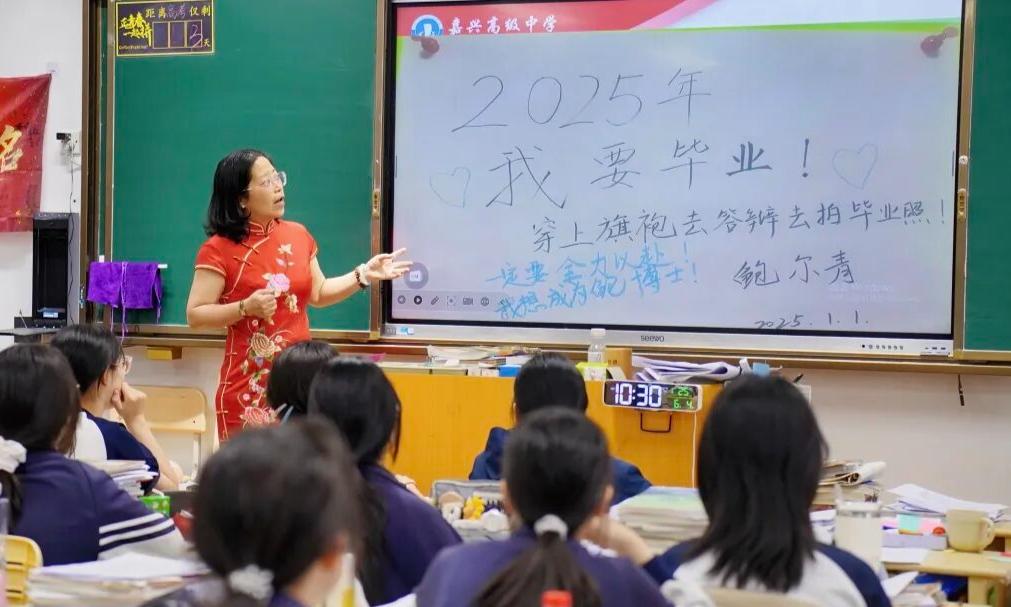 距离高考仅剩
正青春
一起拼
3天
嘉兴高级中学
2025年
我要毕业！
穿上旗袍去答辩去拍毕业照！
一定要全力以赴！
我想成为鲍博士！
鲍尔青
2025.1.1.
seewo
10:30
25
6.4
名